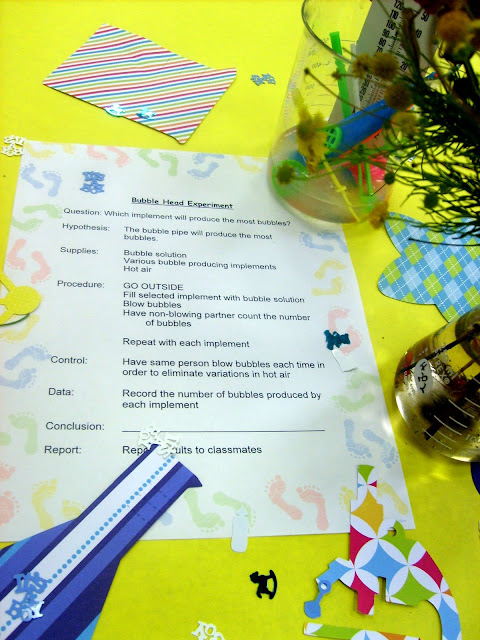 Bubble Head Experiment
Question: Which implement will produce the most bubbles?
Hypothesis: The bubble pipe will produce the most
bubbles.
Supplies: Bubble solution
Various bubble producing implements
Hot air
Procedure: GO OUTSIDE
Fill selected implement with bubble solution
Blow bubbles
Have non-blowing partner count the number
of bubbles
Repeat with each implement
Control: Have same person blow bubbles each time in
order to eliminate variations in hot air
Data: Record the number of bubbles produced by
each implement
Conclusion:
Report: to classmates